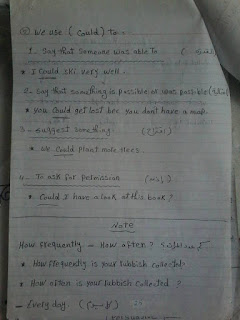 ② We use (Could) to -
1. Say that someone was able to
* I Could ski very well -
2- Say that something is possible or was possible
* you Could get lost bec you don't have a map.
3 - suggest something
* We Could plant more trees.
4 - To ask for permission
* Could I have a look at this book?
Note
How frequently - How often?
* How frequently is your rubbish collected
* How often is your rubbish collected ?
- Every day.